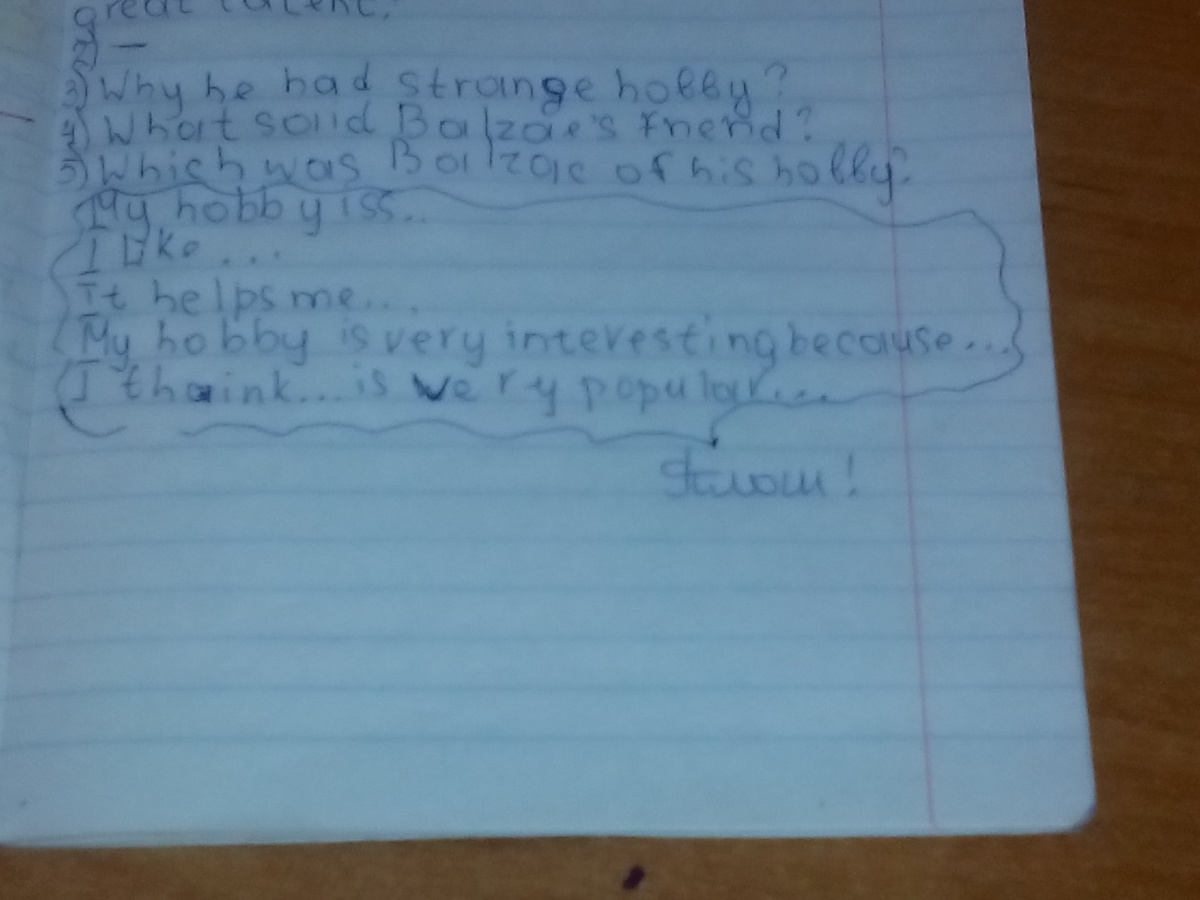 great talent.
2) —
3) Why he had strange hobby?
4) What said Balzac's friend?
5) Which was Balzac of his hobby?
My hobby iss...
I Like ...
It helps me....
My hobby is very interesting because...
I thaink.... is very popular....